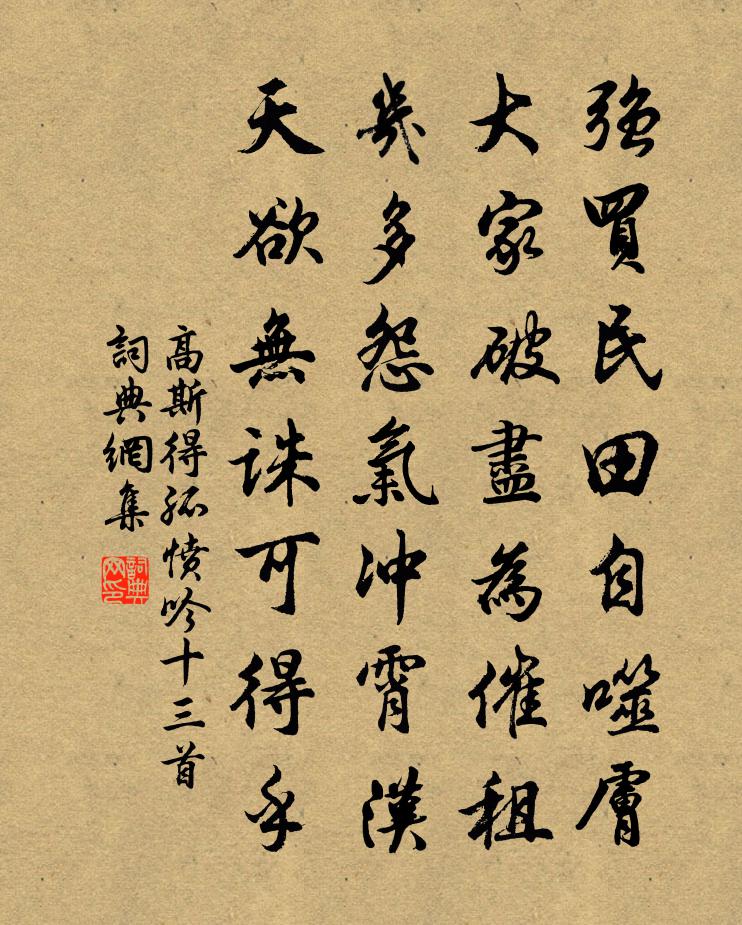 強買民田自噬膚
大家破盡為催租
幾多怨氣冲霄漢
天欲無誅可得乎
高斯得孤憤吟十三首
詞典網集
詞典網印